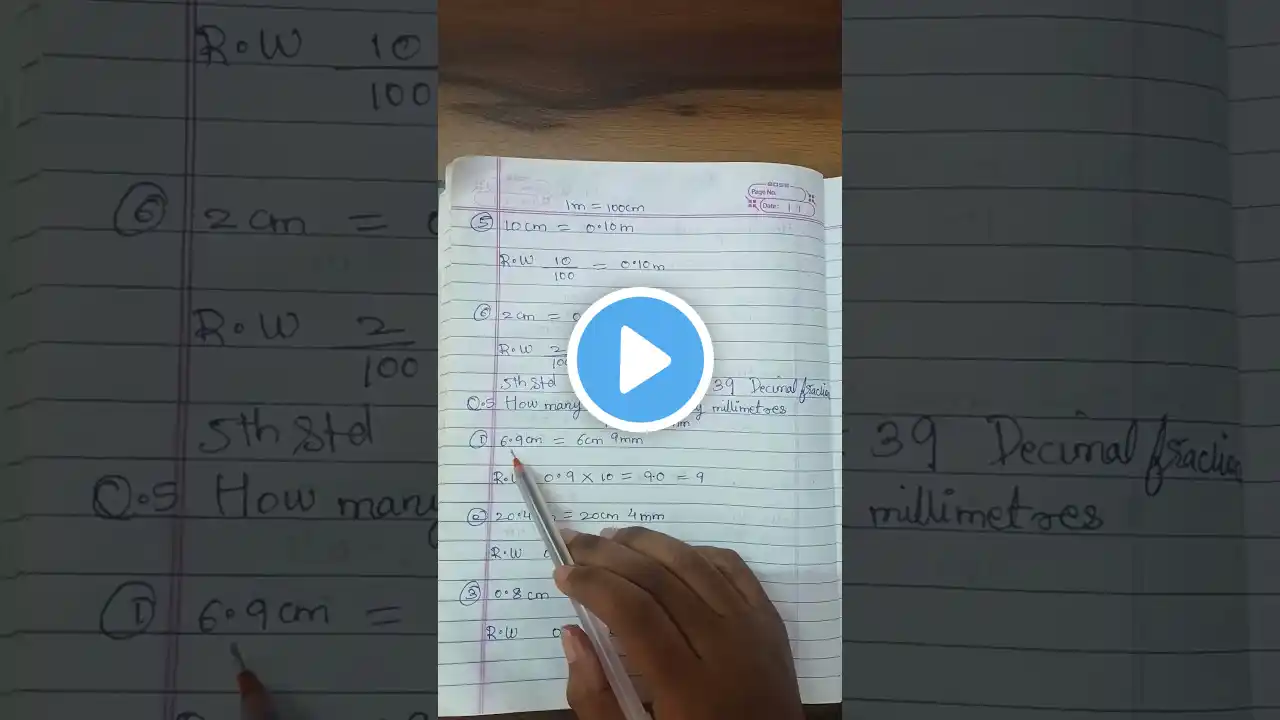 1m = 100cm
Page No.
Date:
⑤ 10cm = 0.10m
R.W 10/100 = 0.10m
⑥ 2cm =
R.W 2
5th Std 39 Decimal fraction
Q.5 How many millimetres
① 6.9cm = 6cm 9mm
0.9 × 10 = 9.0 = 9
② = 20cm 4mm
R.W
③ 0.8cm
R.W